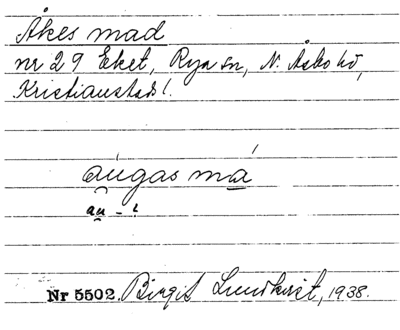 Åkes mad
nr 29 Eket, Rya sn, N. Åsbo hd,
Kristianstads l.
aúgas má
au - '
Nr 5502. Birgit Lundkvist, 1938.